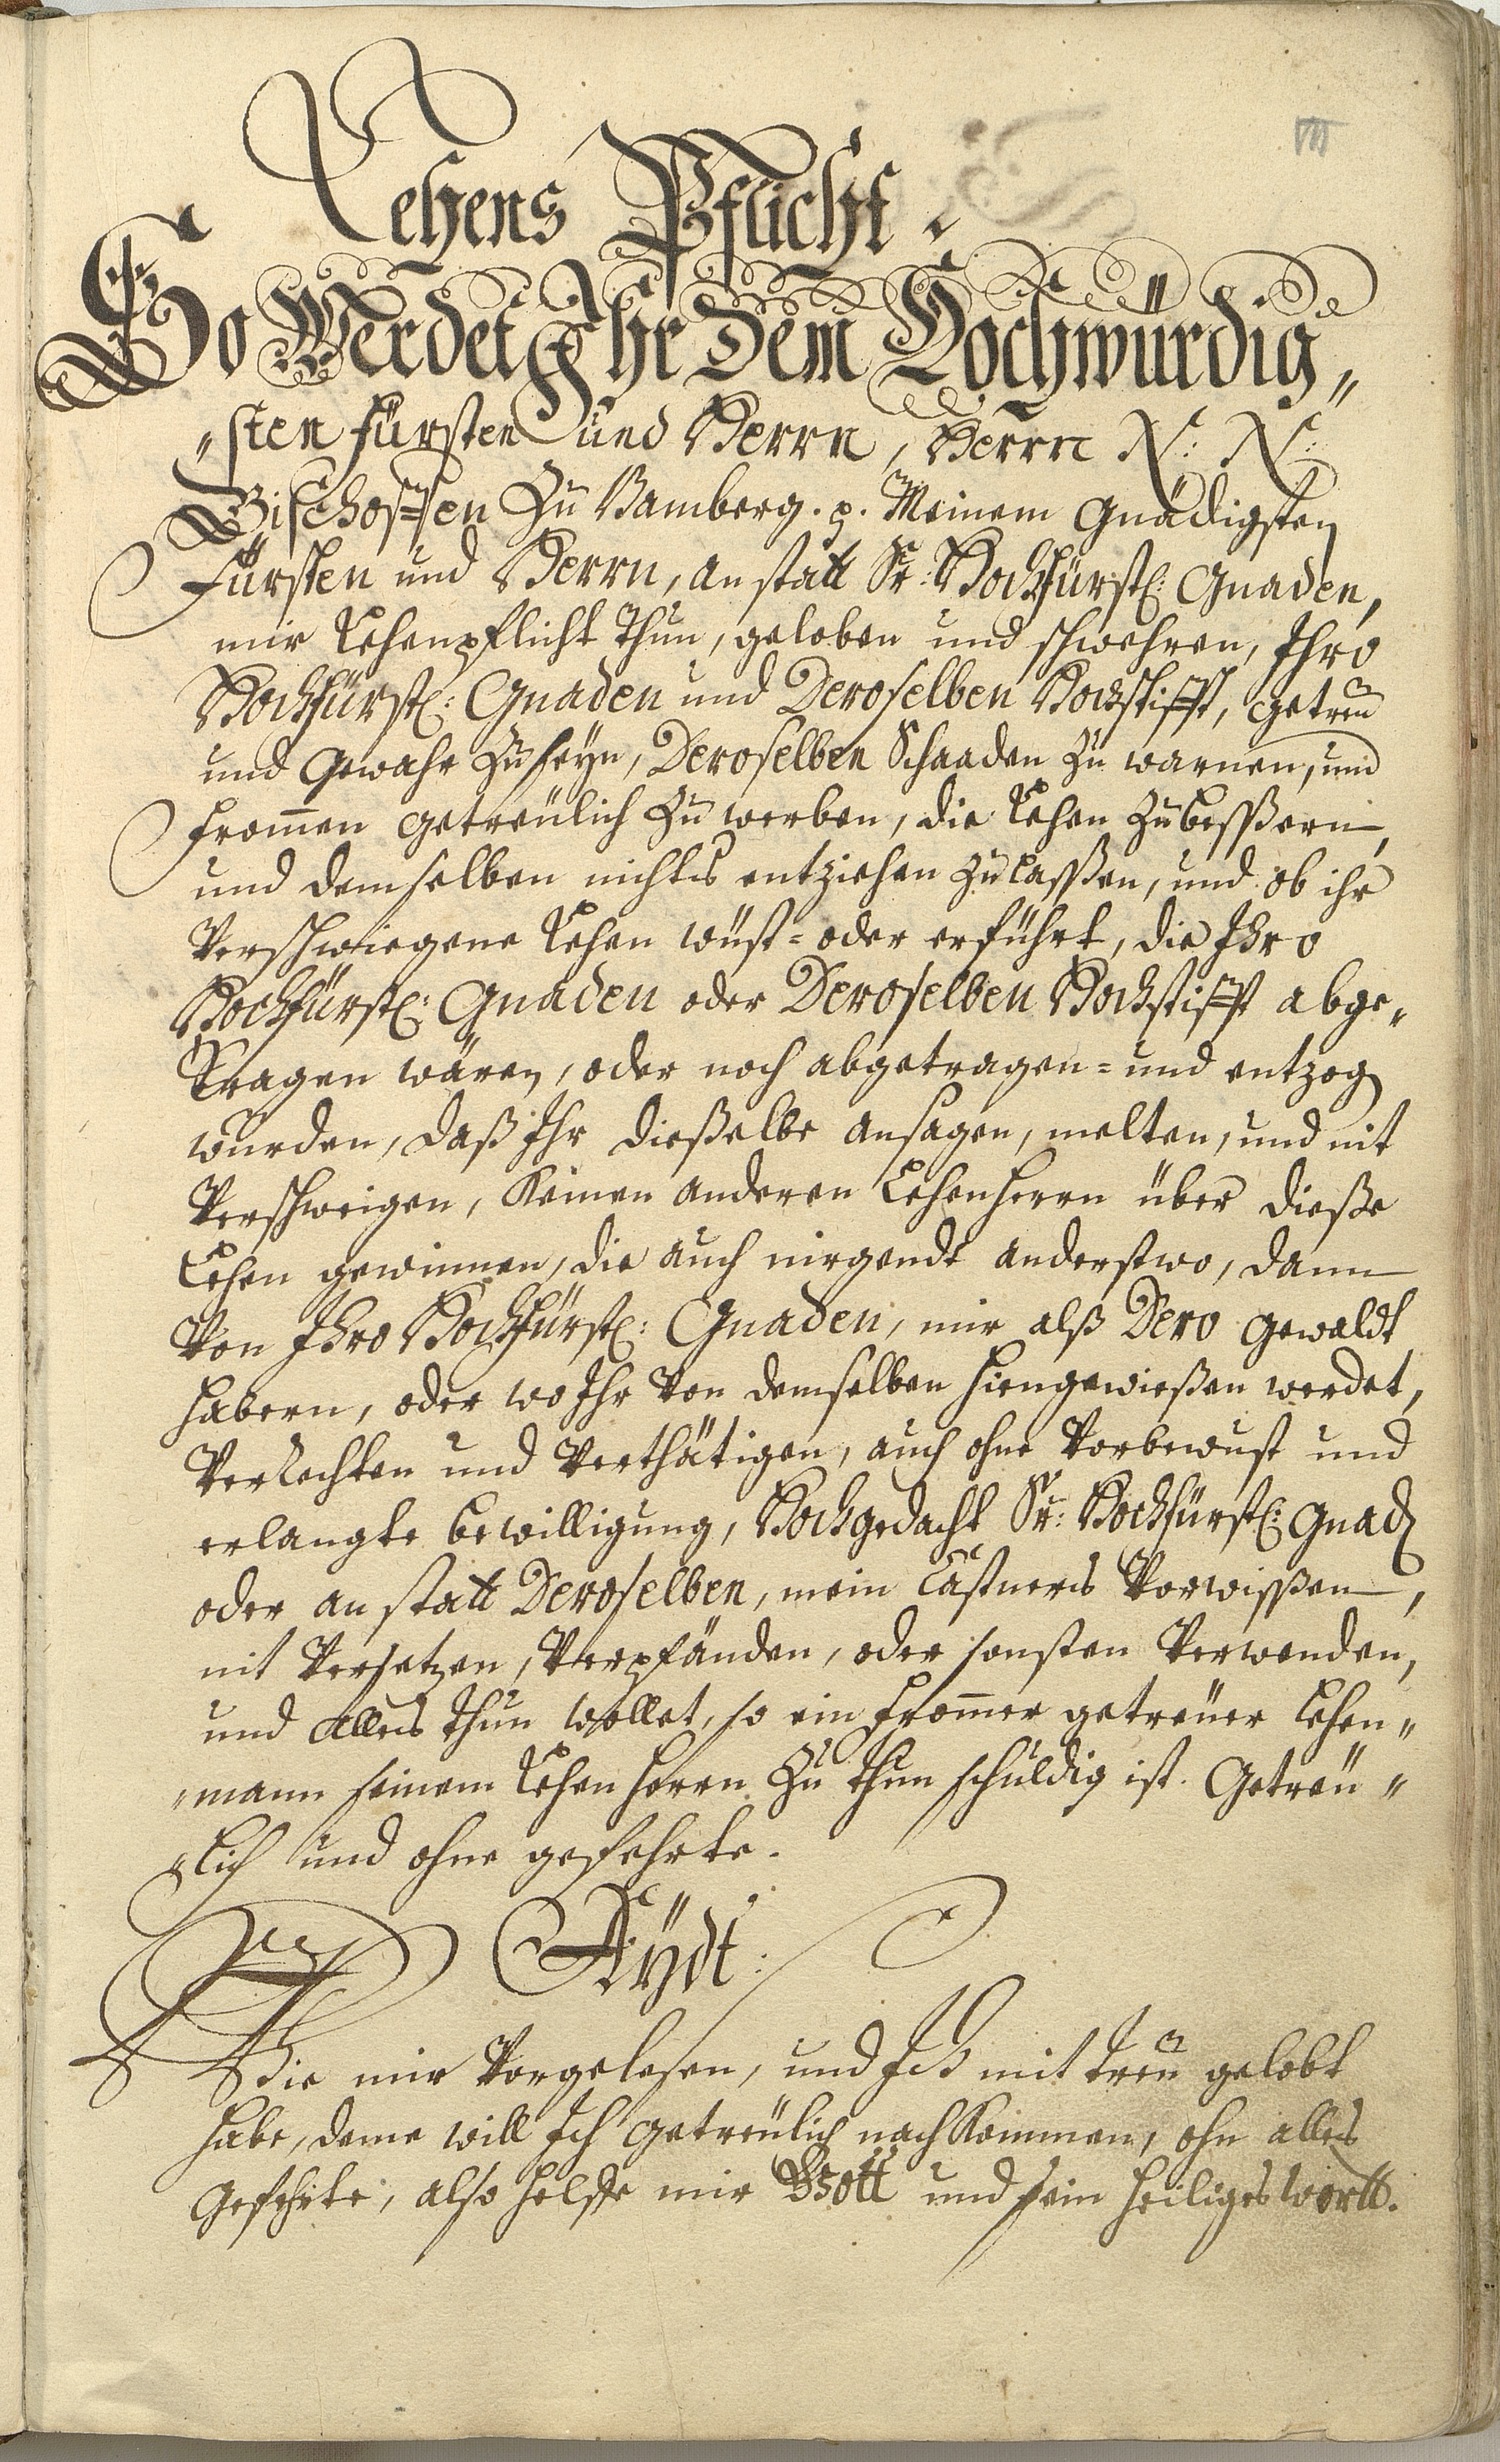 III
Lehens Pflicht.
So Werdet Ihr Dem Hochwürdig„
„sten Fürsten und Herrn, Herrn N: N:
Bischoffen Zu Bamberg. p. Meinem Gnädigsten
Fürsten und Herrn, an statt Sr: Hochfürstl: Gnaden,
mir Lehenpflicht thun, geloben und schwehren, Ihro
Hochfürstl: Gnaden und Deroselben Hochstifft, getreu
und Gewahr Zu seyn, Deroselben Schaaden Zu warnen, und
from̄en getreülich Zu werben, die Lehen Zubeßßern,
und demselben nichts entziehen Zulaßßen, und ob ihr
Verschwiegene Lehen wüst= oder erführt, die Ihro
Hochfürstl: Gnaden oder Deroselben Hochstifft abge„
tragen wären, oder noch abgetragen= und entzog
wurden, daß Ihr dießelbe ansagen, melten, und nit
Verschweigen, Keinen anderen Lehenherrn über dieße
Lehen gewinnen, die auch nirgendt anderstwo, dann
Von Ihro Hochfürstl: Gnaden, mir alß Dero gewaldt
habern, oder wo Ihr Von demselben hiengewießen werdet,
Verrechten und Verthätigen, auch ohne Vorbewust und
erlangte bewilligung, Hochgedacht Sr: Hochfürstl: Gnad
oder an statt Deroselben, mein Castners Vorwißßen,
nit Versetzen, Verpfänden, oder sonsten Verwenden,
und alles thun wollet, so ein from̄er getreüer Lehen„
„mann seinem Lehen herrn Zu thun schuldig ist. Getreü„
„lich und ohne gefehrte.
Aÿdt:
Wie mir Vorgelesen, und Ich mit treu gelobt
habe, deme will Ich getreülich nach Kommen, ohn alles
Gefehrte, also helffe mir Gott und sein heiliges Wortt.